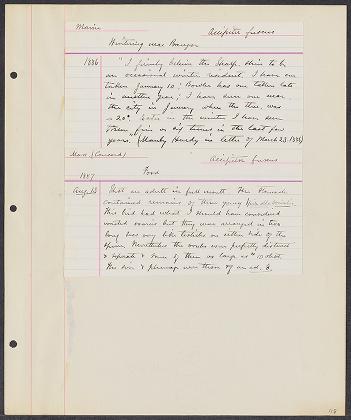 Maine Accipiter fuscus
Wintering near Bangor
1886 "I firmly believe the Sharp-shin to be
an occasional winter resident. I have one
taken January 10; Bowler has one taken late
in another year; I have seen one near
the city in January when the ther. was
-20°. Later in the winter I have seen
them five or six times in the last few
years." (Manly Hardy in letter of March 23, 1886)
Mass. (Concord) Accipiter fuscus
1887 Food
Aug. Shot an adult in full moult. Her stomach
contained remains of three young
This bird had what I should have considered
ovaries but they were arranged in two
long very like testicles on either side of the
spine. Nevertheless the ovules were perfectly distinct
& separate & some of them as large as # 10 shot.
The size & plumage were those of an ad.
118